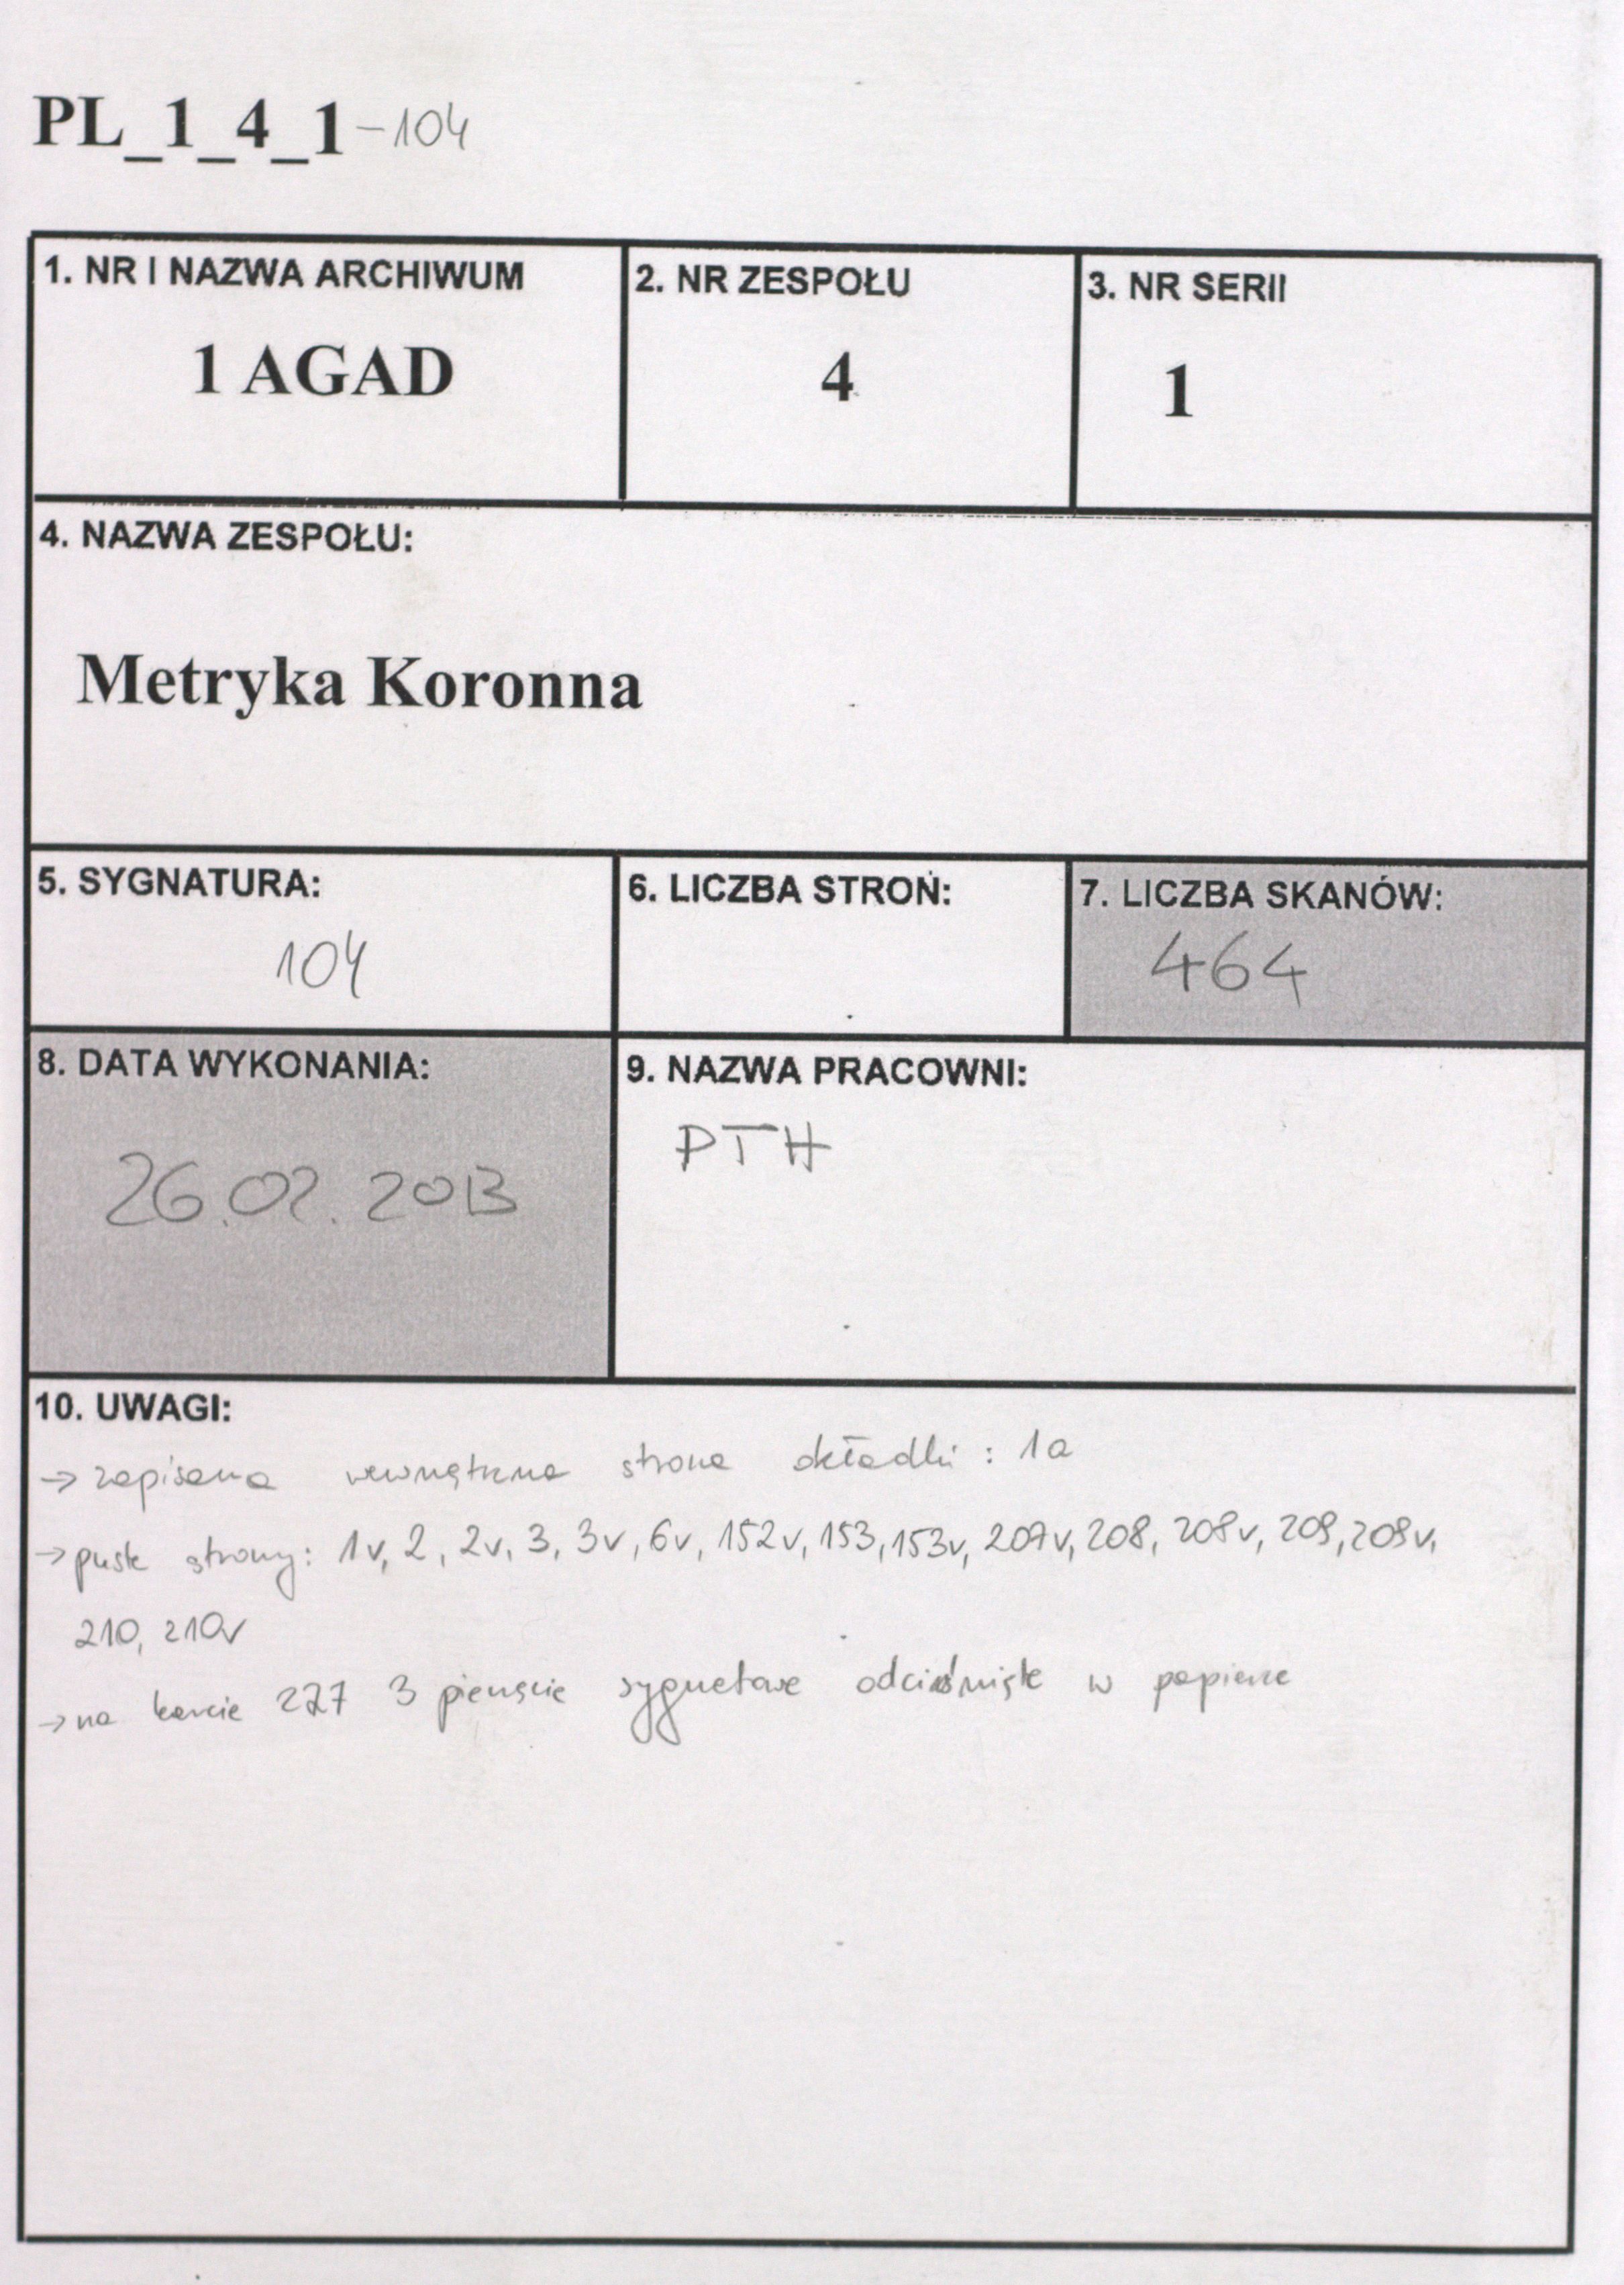 PL_1_4_1-104
1. NR I NAZWA ARCHIWUM
1 AGAD
2. NR ZESPOŁU
4
3. NR SERII
1
4. NAZWA ZESPOŁU:
Metryka Koronna
5. SYGNATURA:
104
6. LICZBA STRON:
7. LICZBA SKANÓW:
464
8. DATA WYKONANIA:
26.02.2013
9. NAZWA PRACOWNI:
PTH
10. UWAGI:
→ zapisana wewnętrzna strona okładki : 1a
→ puste strony: 1v, 2, 2v, 3, 3v, 6v, 152v, 153, 153v, 207v, 208, 208v, 209, 209v,
210, 210v
→ na karcie 227 3 pieczęcie sygnetowe odciśnięte w papierze